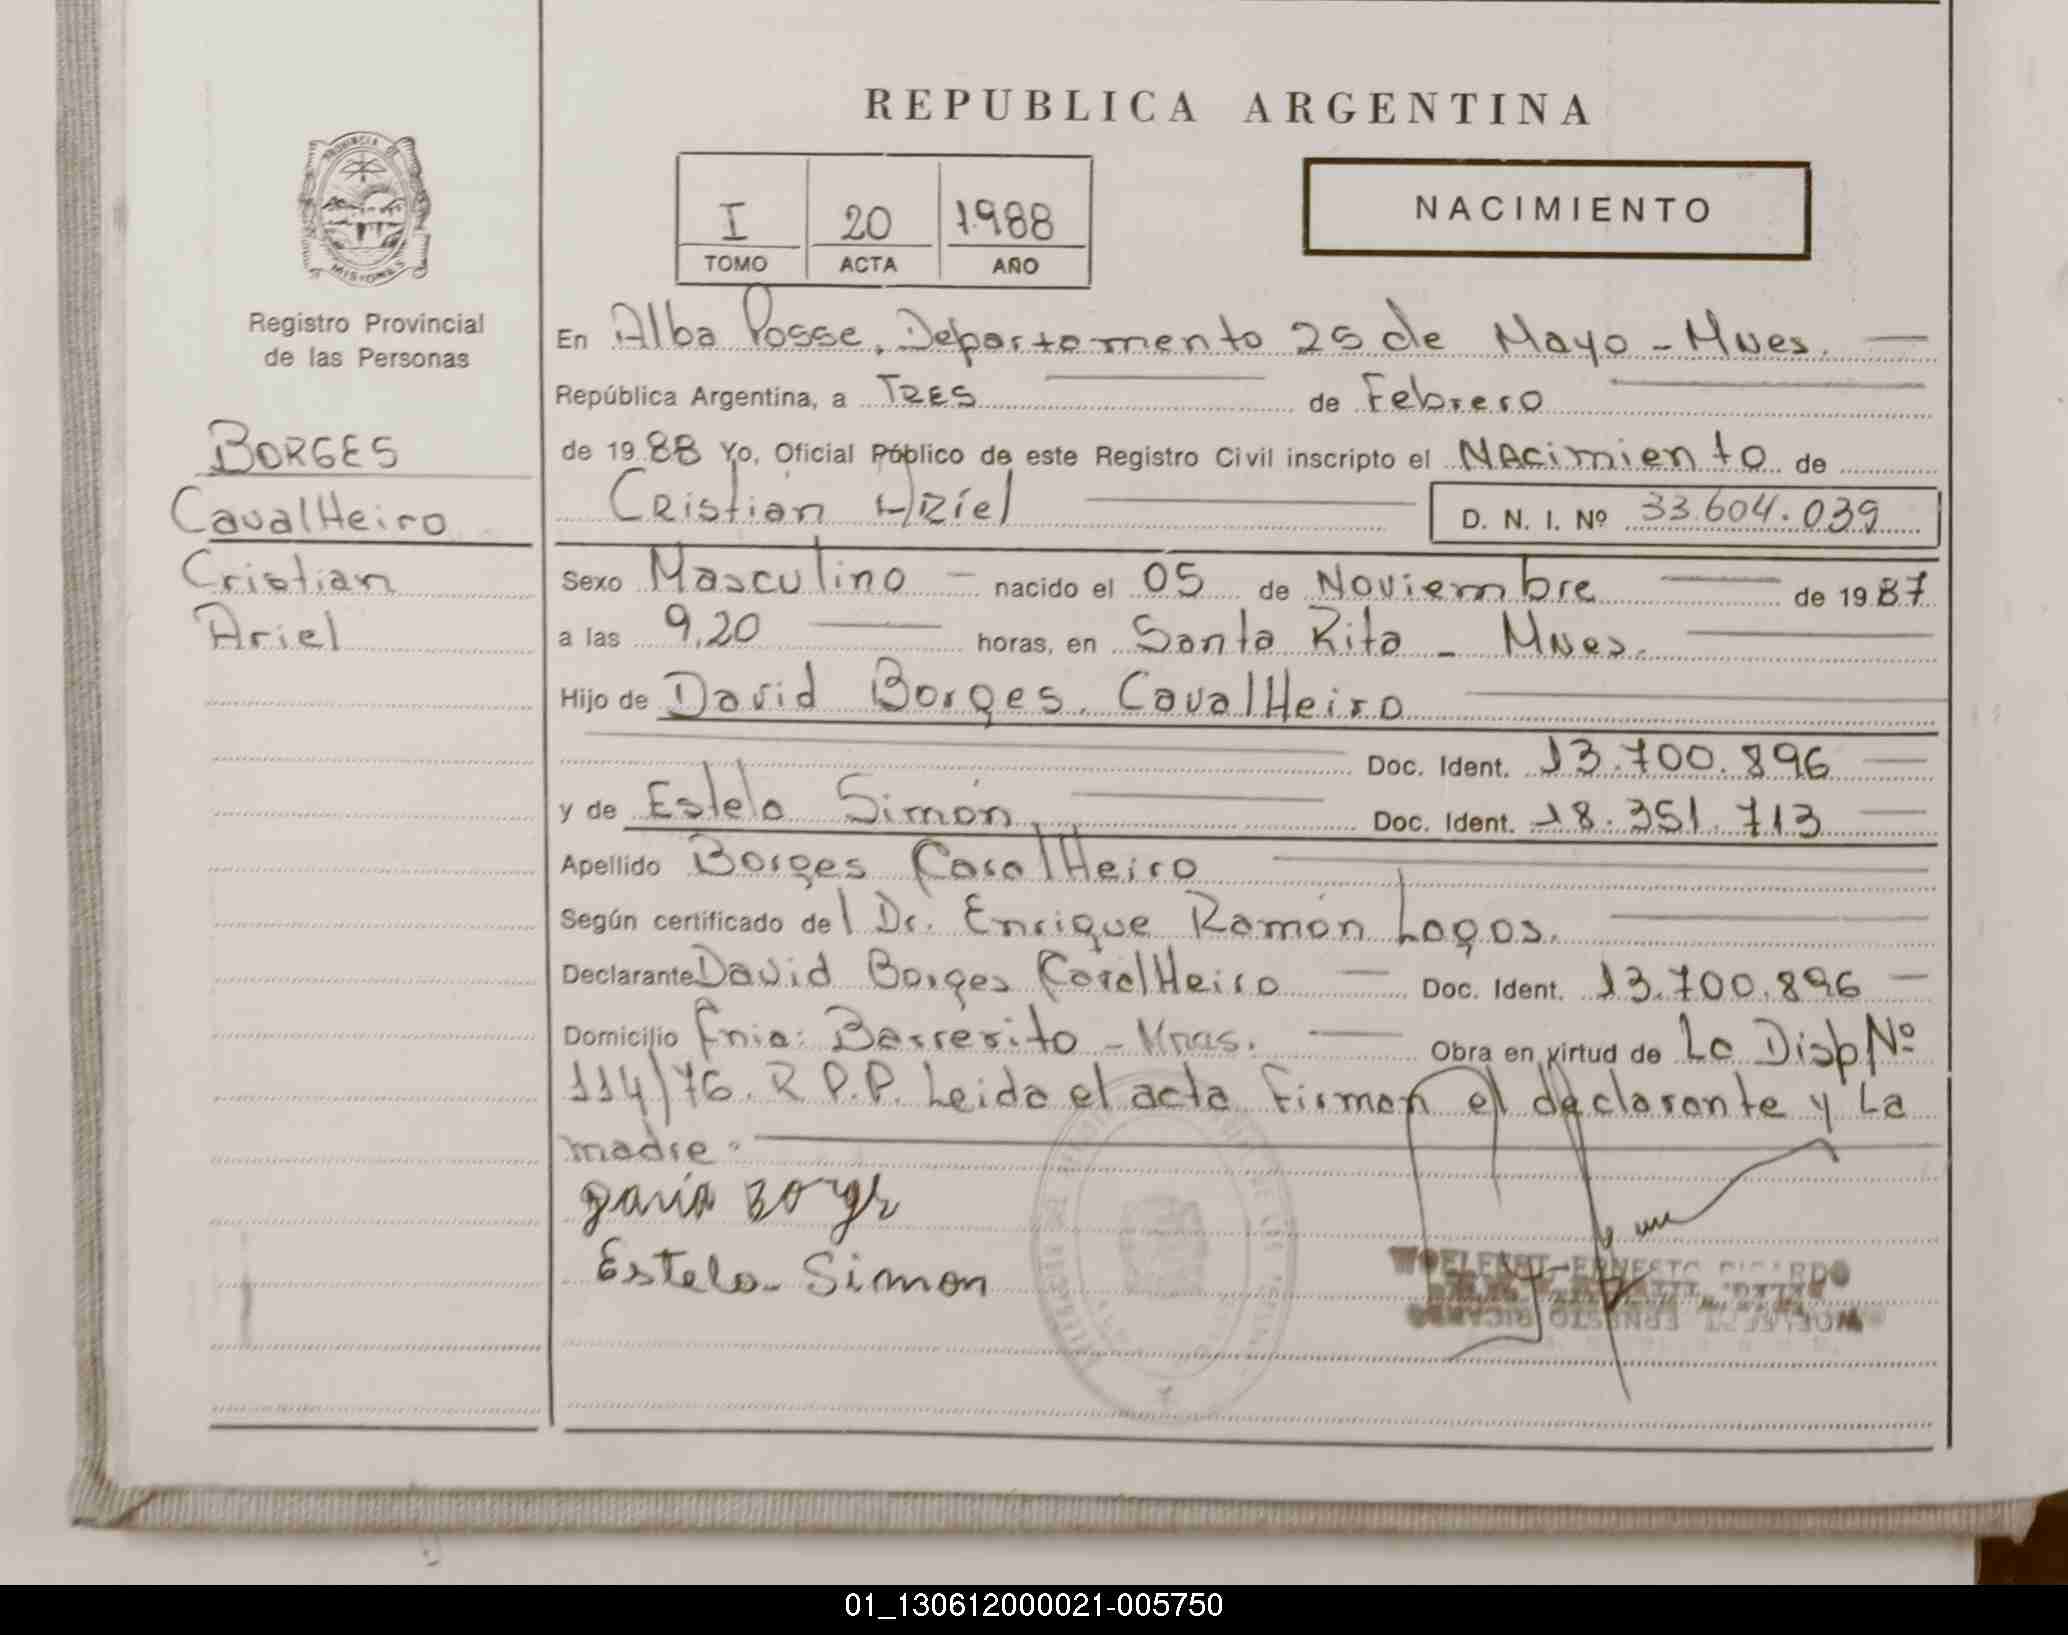 REPUBLICA ARGENTINA
PROVINCIA DE
MISIONES
Registro Provincial
de las Personas
I 20 1988
TOMO ACTA AÑO
NACIMIENTO
BORGES
CavalHeiro
Cristian
Ariel
En Alba Posse, Departamento 25 de Mayo - Mnes.
República Argentina, a TRES de Febrero
de 1988 Yo, Oficial Público de este Registro Civil inscripto el Nacimiento de
Cristian Ariel D. N. I. Nº 33.604.039
Sexo Masculino nacido el 05 de Noviembre de 1987
a las 9,20 horas, en Santa Rita - Mnes.
Hijo de David Borges CavalHeiro
Doc. Ident. 13.700.896
y de Estela Simón Doc. Ident. 18.351.713
Apellido Borges CavalHeiro
Según certificado del Dr. Enrique Ramón Lagos.
Declarante David Borges CavalHeiro Doc. Ident. 13.700.896
Domicilio Cnia: Barrerito - Mnas. Obra en virtud de La Disp Nº
114/76. R.P.P. Leida el acta firman el declarante y La
madre.
David Borges
Estela Simon
ERNESTO RICARDO
01_130612000021-005750